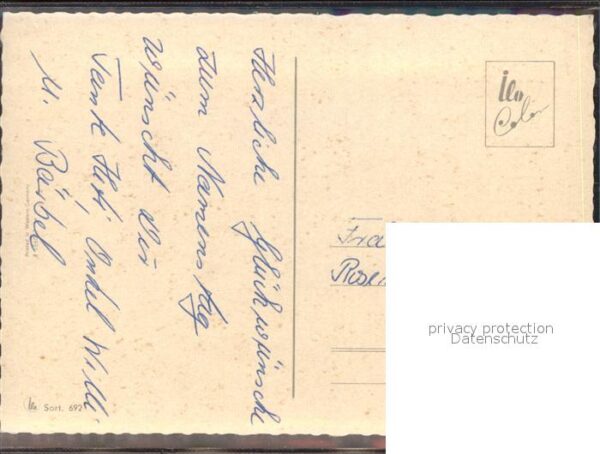 Herzliche Glückwünsche
zum Namenstag
wünscht Dir
Tante Heti, Onkel Willi
u. Bärbel
ilu
Color
Sort. 692
privacy protection
Datenschutz